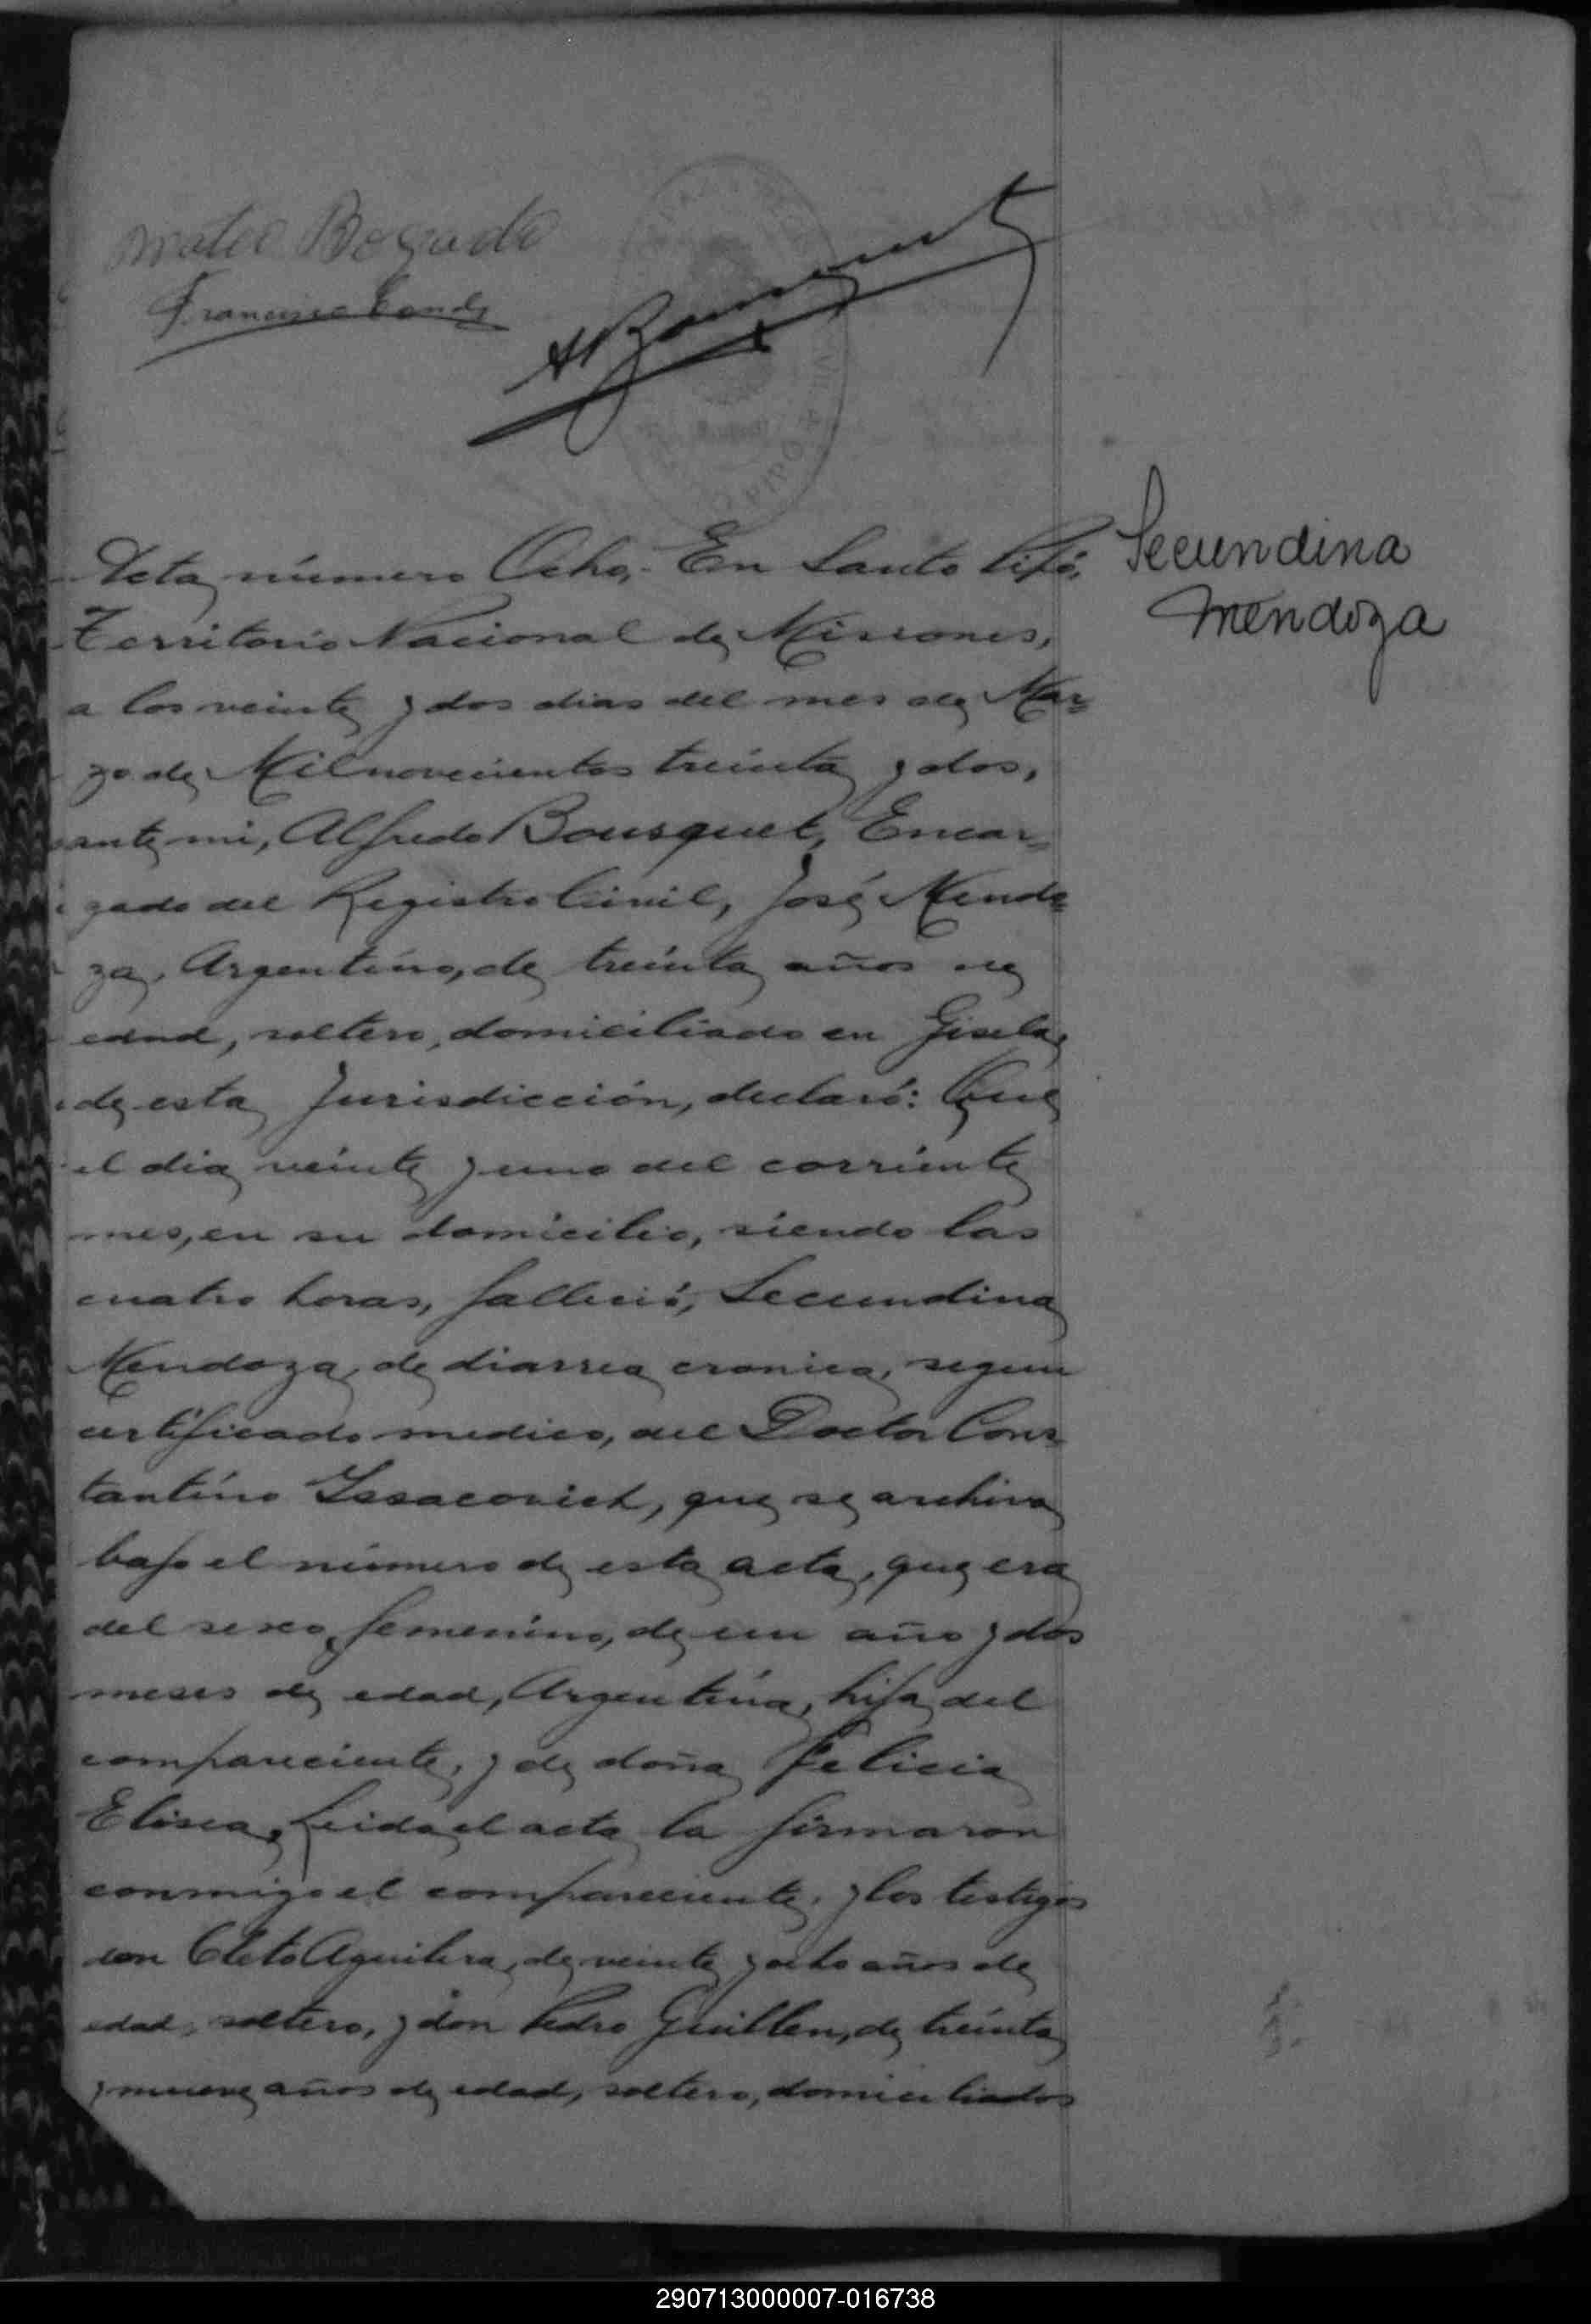 Mateo Bogado
Francisco Conde
ABousquet
Acta número Ocho.- En Santo Pipó,
Territorio Nacional de Misiones,
a los veinte y dos dias del mes de Mar=
zo de Mil novecientos treinta y dos,
ante mi, Alfredo Bousquet, Encar=
gado del Registro Civil, José Mendo=
za, Argentino, de treinta años de
edad, soltero, domiciliado en Gisela,
de esta Jurisdicción, declaró: Que
el dia veinte y uno del corriente
mes, en su domicilio, siendo las
cuatro horas, falleció, Secundina
Mendoza, de diarrea cronica, segun
certificado medico, del Doctor Cons=
tantino Issacovich, que se archiva
bajo el número de esta acta, que era
del sexo femenino, de un año y dos
meses de edad, Argentina, hija del
compareciente, y de doña Felicia
Elisea, Leida el acta la firmaron
conmigo el compareciente, y los testigos
don Cleto Aguilera, de veinte y ocho años de
edad, soltero, y don Pedro Guillen, de treinta
y nueve años de edad, soltero, domiciliados
Secundina
Mendoza
290713000007-016738